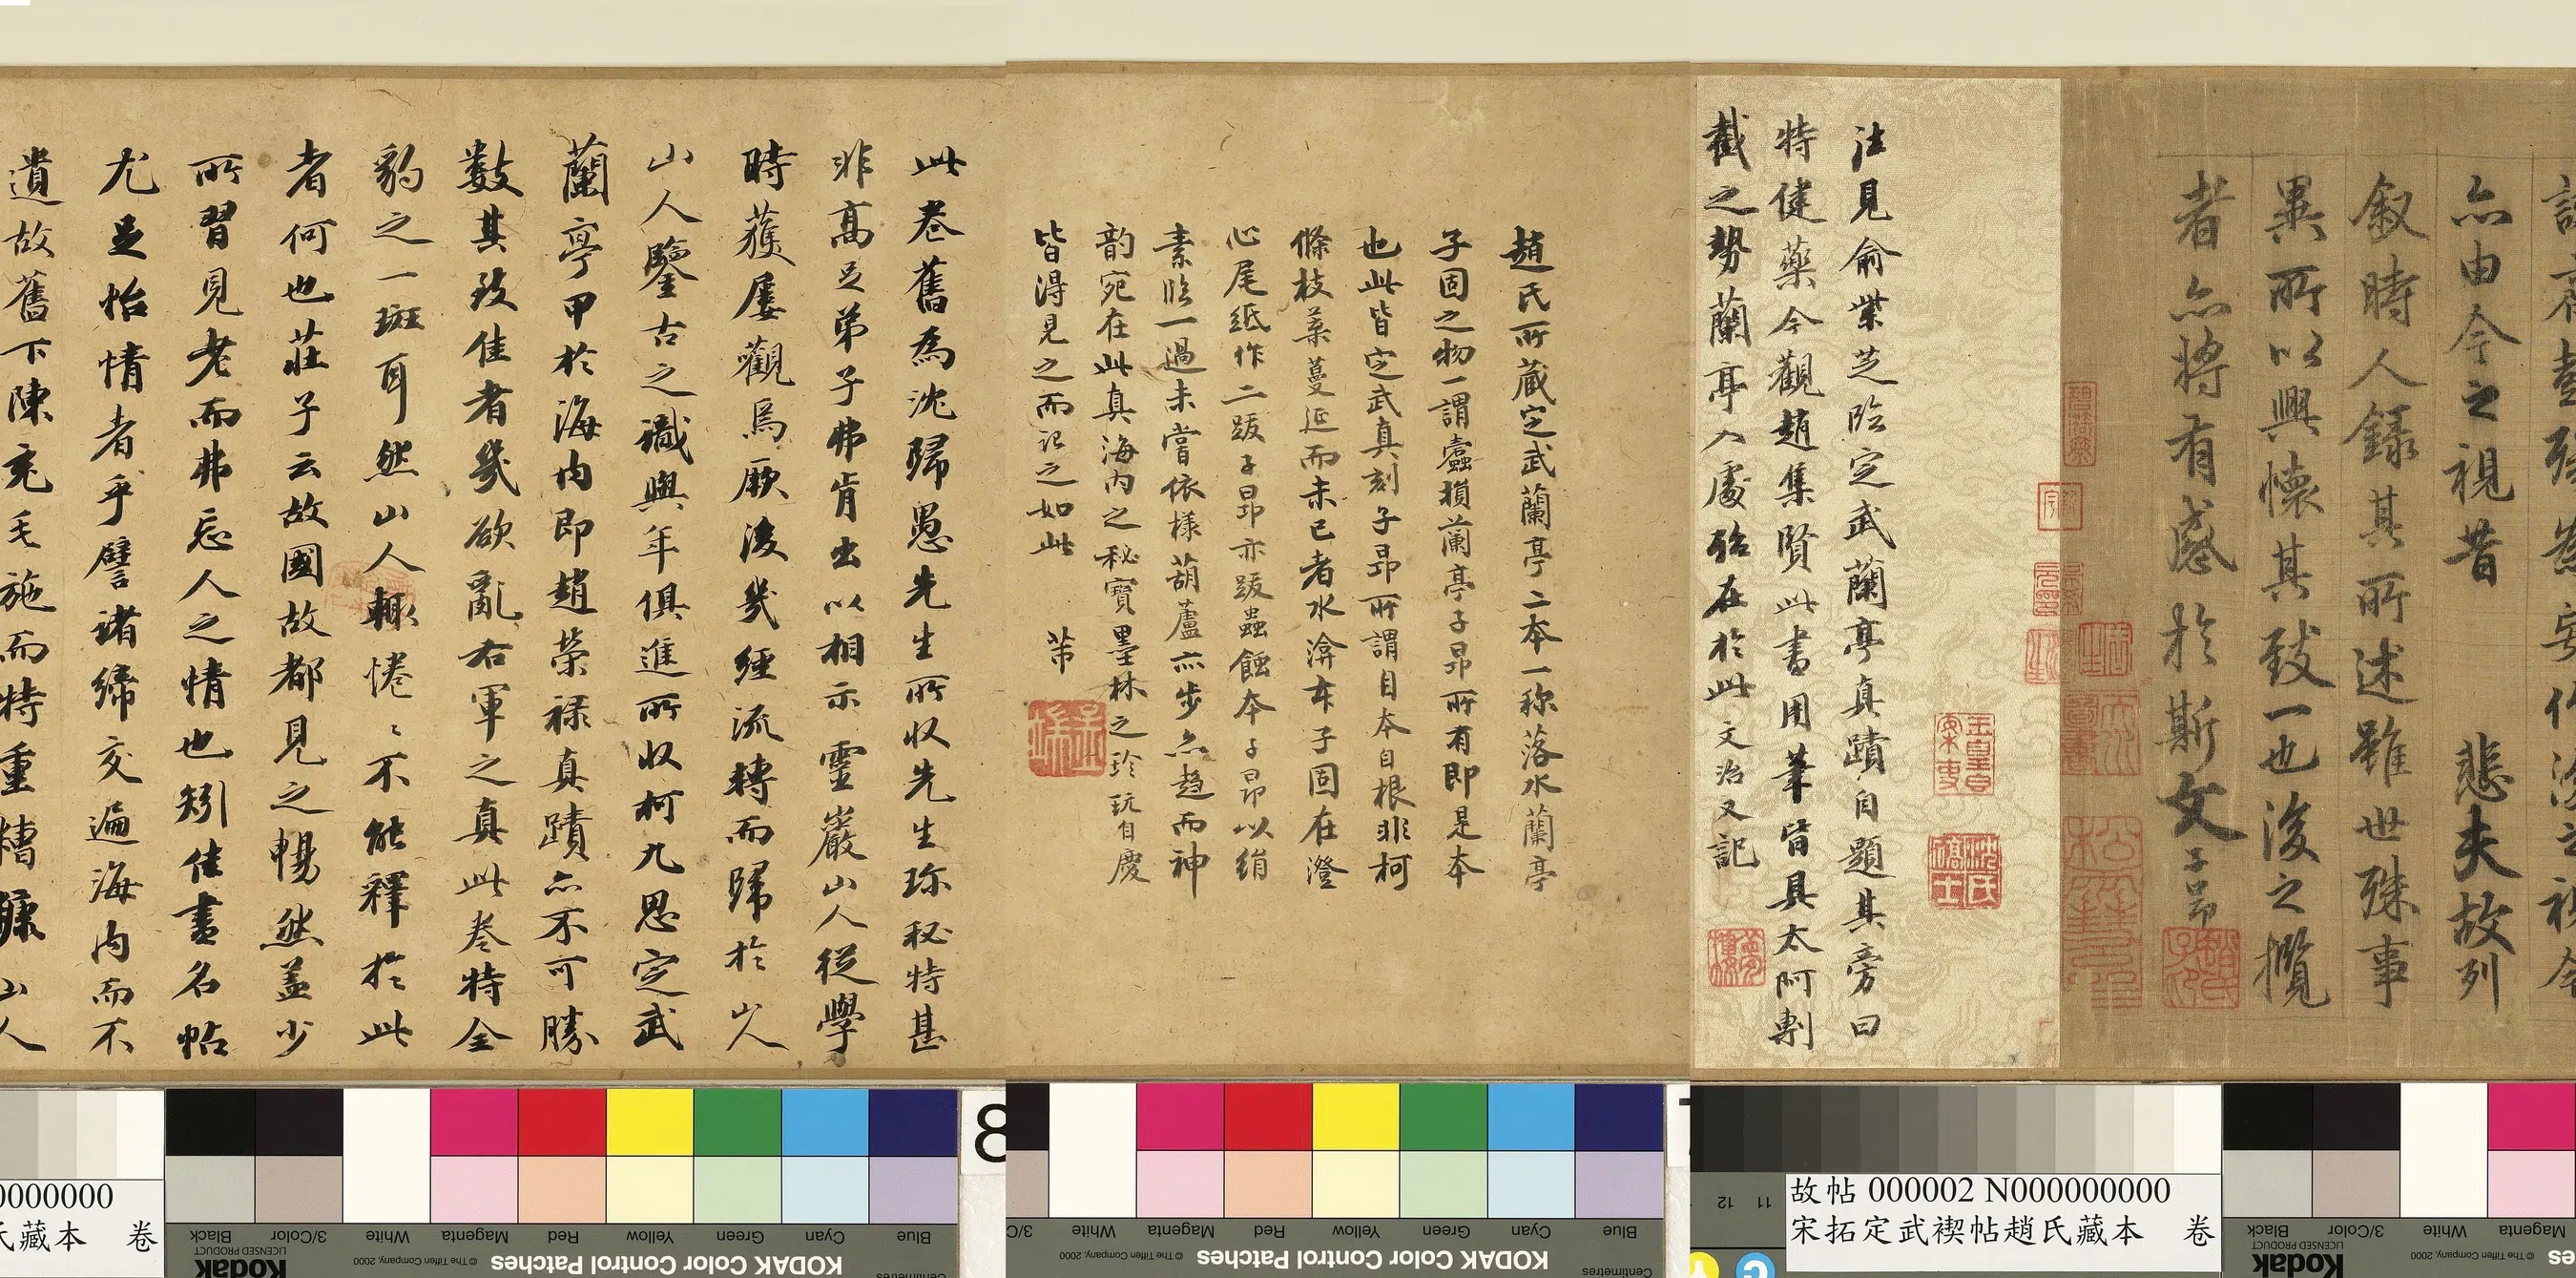 亦由今之視昔 悲夫故列
叙時人錄其所述雖世殊事
異所以興懷其致一也後之攬
者亦將有感於斯文子昂
注見俞紫芝臨定武蘭亭真蹟自題其旁曰
特健藥今觀趙集賢此書用筆皆具太阿剸
截之勢蘭亭入處殆在於此文治又記
趙氏所藏定武蘭亭二本一称落水蘭亭
子固之物一謂蠹損蘭亭子昂所有即是本
也此皆定武真刻子昂所謂自本自根非柯
條枝葉蔓延而未已者水渰本子固在澄
心尾紙作二跋子昂亦跋蟲蝕本子昂以絹
素臨一過未嘗依樣葫蘆亦步亦趨而神
韵宛在此真海内之秘寳墨林之珍玩自慶
皆得見之而記之如此 芾
此卷舊為沈歸愚先生所収先生珎秘特甚
非高足弟子弗肯出以相示靈巖山人從學
時獲屢觀焉厥後幾經流轉而歸於山人
山人鑒古之識與年俱進所収柯九思定武
蘭亭甲於海内即趙榮祿真蹟亦不可勝
數其致佳者幾欲亂右軍之真此卷特全
豹之一斑耳然山人輒惓〻不能釋於此
者何也莊子云故國故都見之暢然盖少
所習見老而弗忘人之情也矧佳畫名帖
尤足怡情者乎譬諸締交遍海内而不
遺故舊下陳充毛施而特重糟糠山人
8
故帖 000002 N000000000
宋拓定武禊帖趙氏藏本 卷
0000000
氏藏本 卷
Blue Cyan Green Yellow Red Magenta White 3/Color Black
KODAK Color Control Patches © The Tiffen Company, 2000
Kodak
LICENSED PRODUCT
Centimetres